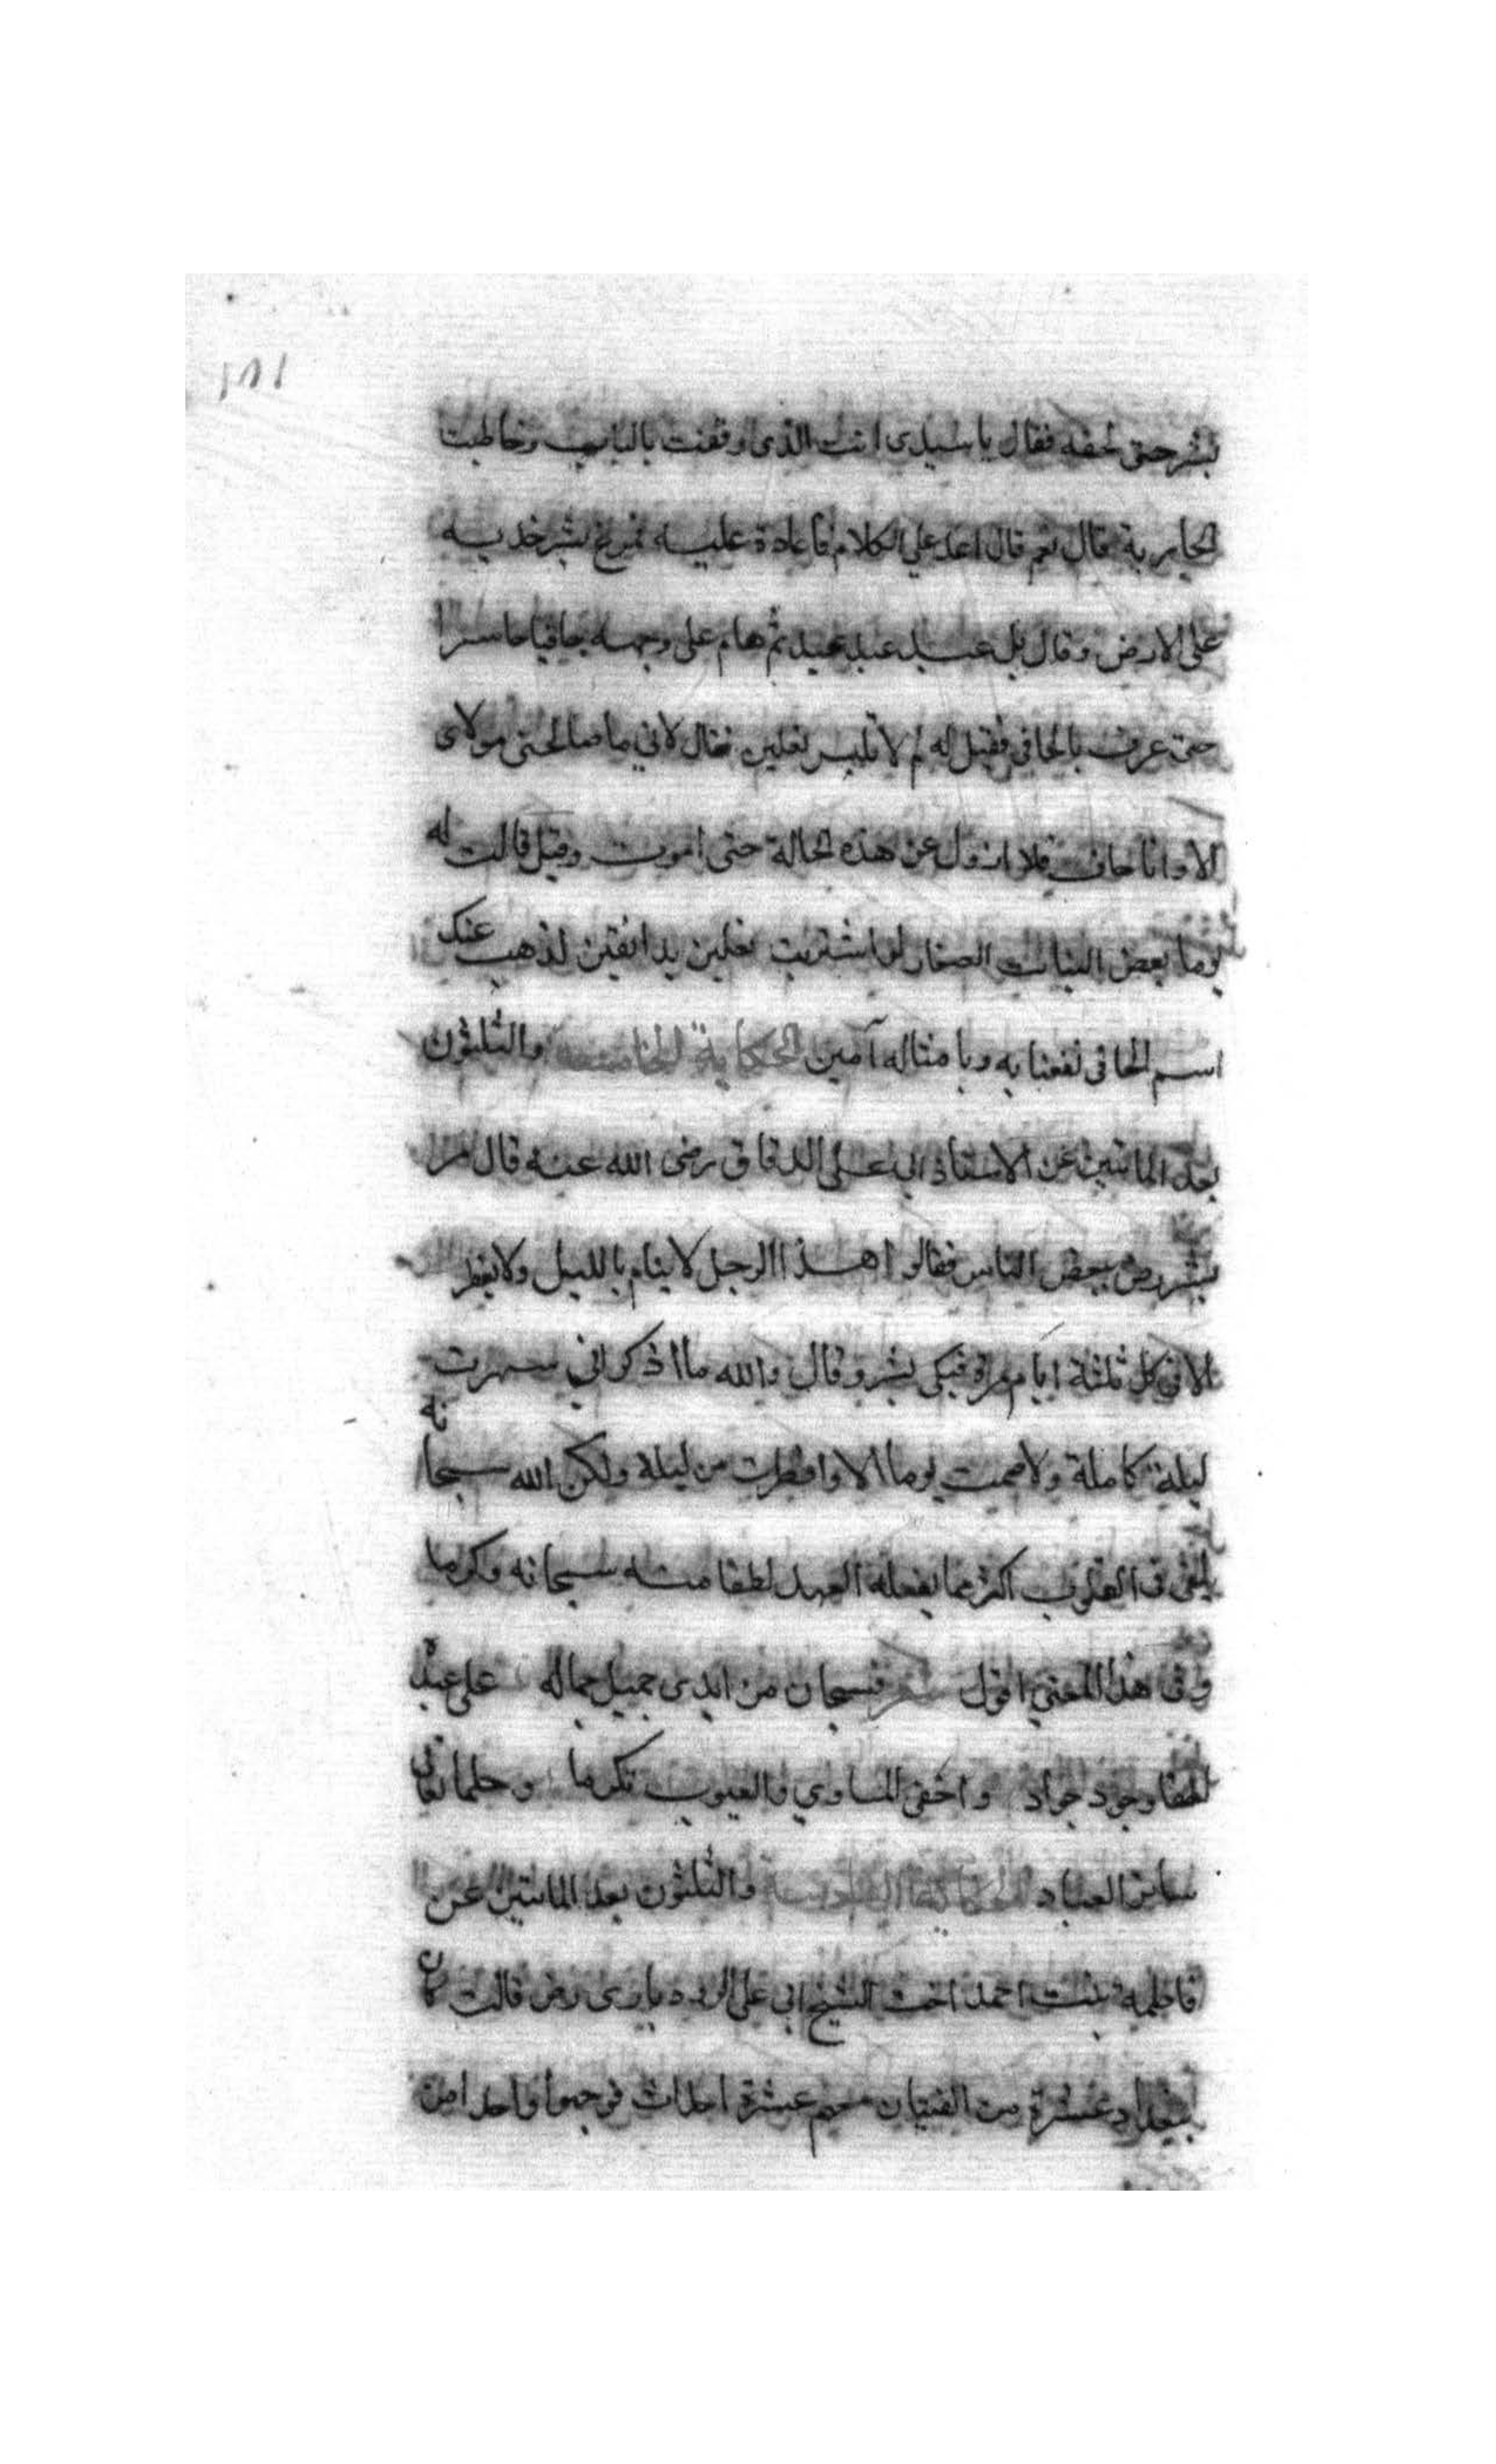 ١٨١
بشر حتى لحقه فقال يا سيدى انت الذى وقفت بالباب وخاطبت
الجارية قال نعم قال اعد علي الكلام فاعادة عليه فمرغ بشر خديه
على الارض وقال بل عبد عبد عبيد ثم هام على وجهه حافيا حاسرا
حتى عرف بالحافي فقيل له لم لا تلبس نعلين فقال لاني ما صالحنى مولاى
الا وانا حاف فلا ازول عن هذه الحالة حتى اموت وقيل قالت له
يوما بعض البنات الصغار لو اشتريت نعلين بدانقين لذهب عنك
اسم الحافى نفعنا به وبامثاله آمين الحكاية الخامسة والثلثون
بعد المائتين عن الاستاذ ابي على الدقاق رضى الله عنه قال مر
بشر رض ببعض الناس فقالوا هذا الرجل لا ينام بالليل ولا يفطر
الا فى كل ثلثة ايام مرة فبكى بشر وقال والله ما اذكر اني سهرت
ليلة كاملة ولا صمت يوما الا وافطرت من ليلة ولكن الله سبحانه
يلقى فى القلوب اكثر مما يفعله العبد لطفا منه سبحانه وكرما
وفى هذا المعنى اقول شعر فسبحان من ابدى جميل جماله على عبد
لطفا وجود جواد واخفى المساوي والعيوب تكرما وحلما تعالى
ساتر العباد الحكاية السادسة والثلثون بعد المائتين عن
فاطمة بنت احمد اخت الشيخ ابي على الرودباري رض قالت كان
ببغداد عشرة من الفتيان معهم عشرة احداث فوجهوا واحدا من